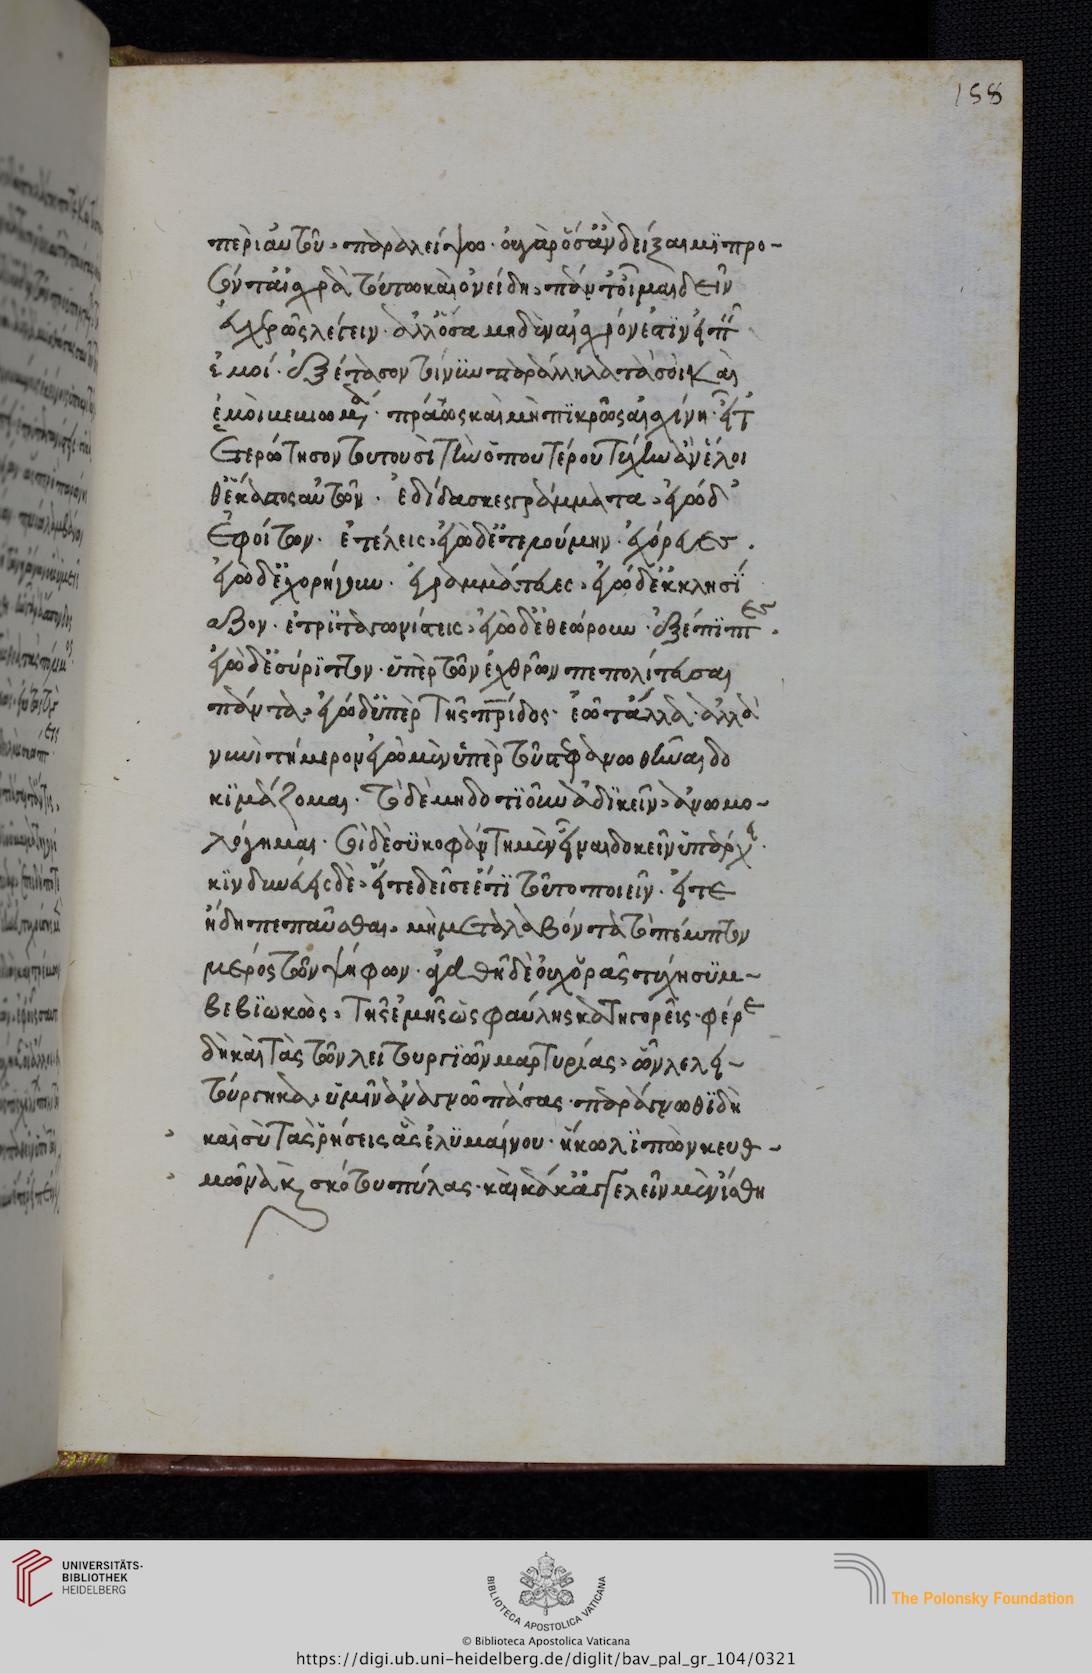 158
περὶ αὐτοῦ, παραλείψω· οὐ γὰρ ὅσ' ἂν δείξαιμι προ-
σόντ' αἰσχρὰ τούτω καὶ ὀνείδη, πάντ' οἶμαι δεῖν
εὐχερῶς λέγειν· ἀλλ' ὅσα μηδὲν αἰσχρόν ἐστιν εἰπεῖν
ἐμοί· ἐξέτασον τοίνυν παράλληλα τὰ σοὶ καὶ
ἐμοὶ βεβιωμένα· πράως καὶ μὴ πικρῶς αἰσχίνη· εἶτ'
ἐπερώτησον τουτουσὶ τὴν ὁποτέρου τύχην ἂν ἕλοι
θ' ἕκαστος αὐτῶν· ἐδίδασκες γράμματα, ἐγὼ δ'
ἐφοίτων· ἐτέλεις, ἐγὼ δ' ἐτελούμην· ἐχόρευες·
ἐγὼ δ' ἐχορήγουν· ἐγραμμάτευες, ἐγὼ δ' ἐκκλησί
αζον· ἐτριταγωνίστεις, ἐγὼ δ' ἐθεώρουν· ἐξέπιπτες·
ἐγὼ δ' ἐσύριττον· ὑπὲρ τῶν ἐχθρῶν πεπολίτευσαι
πάντα, ἐγὼ δ' ὑπὲρ τῆς πρίδος· ἐῶ τἄλλα· ἀλλὰ
νυνὶ τήμερον ἐγὼ μὲν ὑπὲρ τοῦ στεφανωθῆναι δο
κιμάζομαι· τὸ δὲ μηδοτιοῦν ἀδικεῖν, ἀνωμο-
λόγημαι· σοὶ δὲ συκοφάντη μὲν εἶναι δοκεῖν ὑπάρχει·
κινδυνεύεις δὲ, εἴτε δεῖ σε ἔτι τοῦτο ποιεῖν· εἴτε
ἤδη πεπαῦσθαι, μὴ μεταλαβόντα τὸ πέμπτον
μέρος τῶν ψήφων· ἀγαθῇ δὲ οὐχ ὁρᾷς τύχη συμ-
βεβιωκὼς, τῆς ἐμῆς ὡς φαύλης κατηγορεῖς· φέρε
δὴ καὶ τὰς τῶν λειτουργιῶν μαρτυρίας, ὧν λελει-
τούργηκα, ὑμῖν ἀναγνῶ πάσας· παρανάγνωθι δὲ
καὶ σὺ τὰς ῥήσεις ἃς ἐλυμαίνου· ἥκω λιπὼν κευθ-
μῶνα κ σκότου πύλας· καὶ κακαγγελεῖν μὲν ἴσθι
UNIVERSITÄTS-
BIBLIOTHEK
HEIDELBERG
BIBLIOTECA APOSTOLICA VATICANA
The Polonsky Foundation
© Biblioteca Apostolica Vaticana
https://digi.ub.uni-heidelberg.de/diglit/bav_pal_gr_104/0321